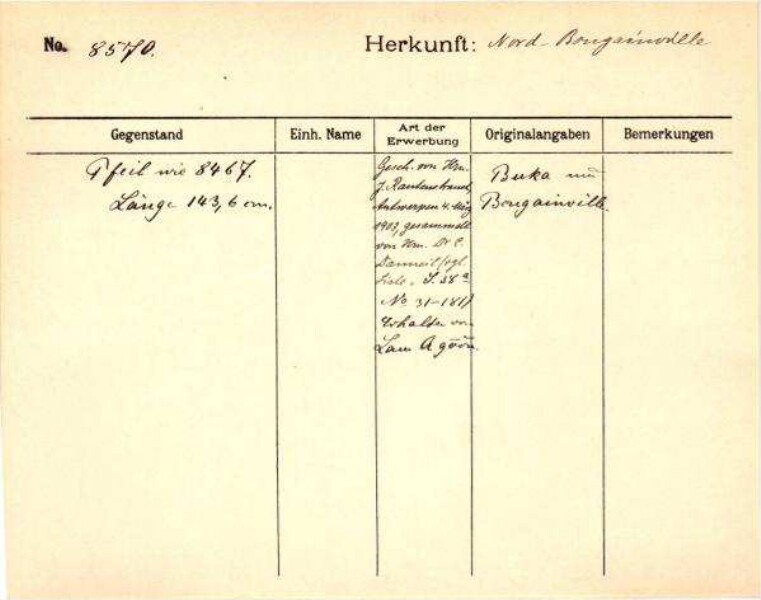 No. 8570. Herkunft: Nord-Bougainville
Gegenstand Einh. Name Art der Erwerbung Originalangaben Bemerkungen
Pfeil wie 8467.
Länge 143,6 cm.
Gesch. von Hrn.
J. Rautenstrauch
Antwerpen 4. März
1903, gesammelt
von Hrn. Dr C.
Danneil (vgl.
Liste, S. 38a
No 31-181)
Erhalten von
Lau
Buka
Bougainville.